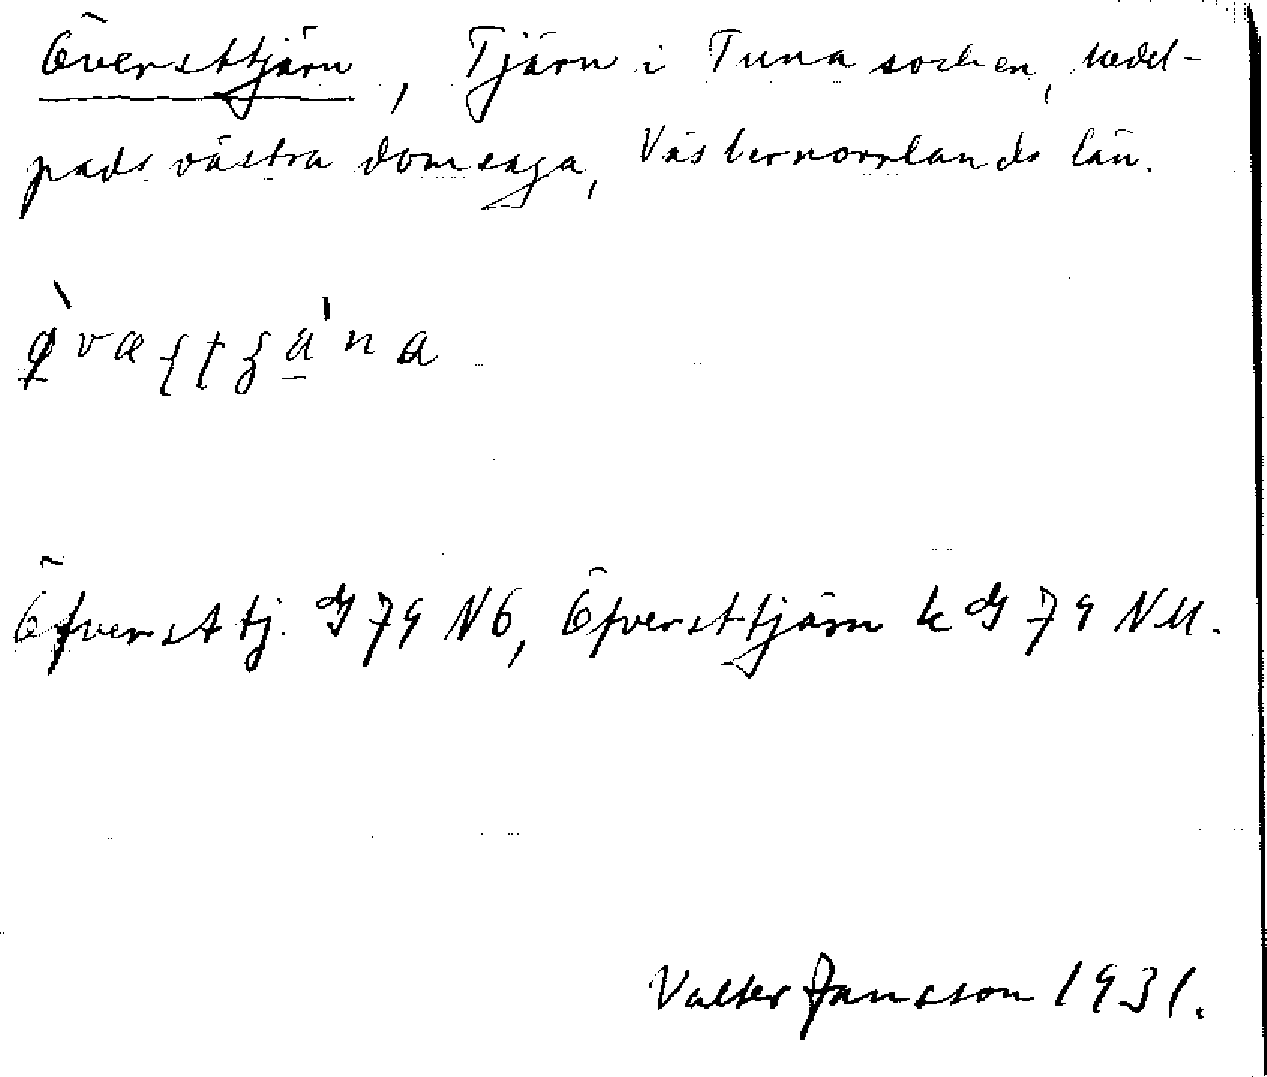 Översttjärn, Tjärn i Tuna socken, Medel-
pads västra domsaga, Västernorrlands län.
Öfversttj. G 79 NÖ, Öfversttjärn k G 79 NU.
Valter Jansson 1931.